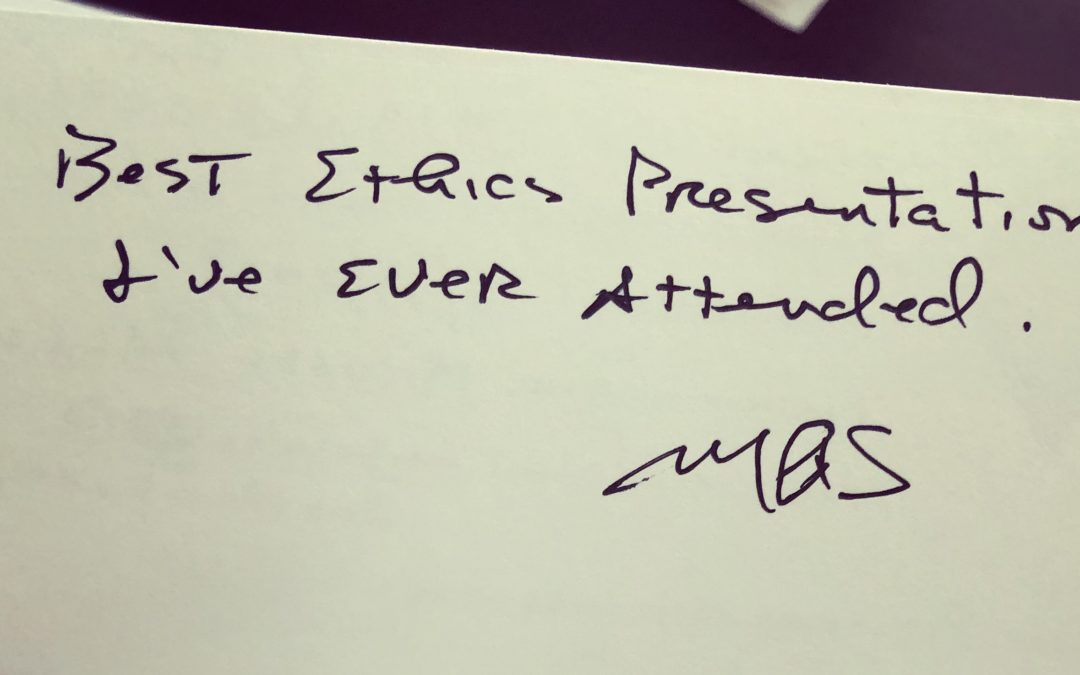 Best Ethics Presentation
I've Ever Attended.
MAS